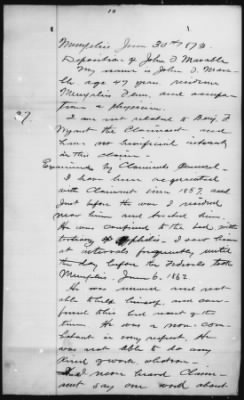 10
Memphis June 30th 1873.
Deposition of John D. Marable
My name is John D. Mara-
ble age 47 years residence
Memphis Tenn, and occupa-
tion a physician.
27.
I am not related to Benj. F
the Claimant and
have no beneficial interest
in this claim.
Examined by Claimants Counsel.
I have been acquainted
with Claimant since 1857 and
just before the war I resided
near him and
He was confined to the bed with
I saw him
at intervals frequently until
the day before the Federals took
Memphis. June 6. 1862
He was unwell and not
able to help himself and con-
fined to his bed most of the
time. He was a non-com-
batant in every respect. He
was not able to do any
kind of work whatever.
I never heard Claim-
ant say one word about